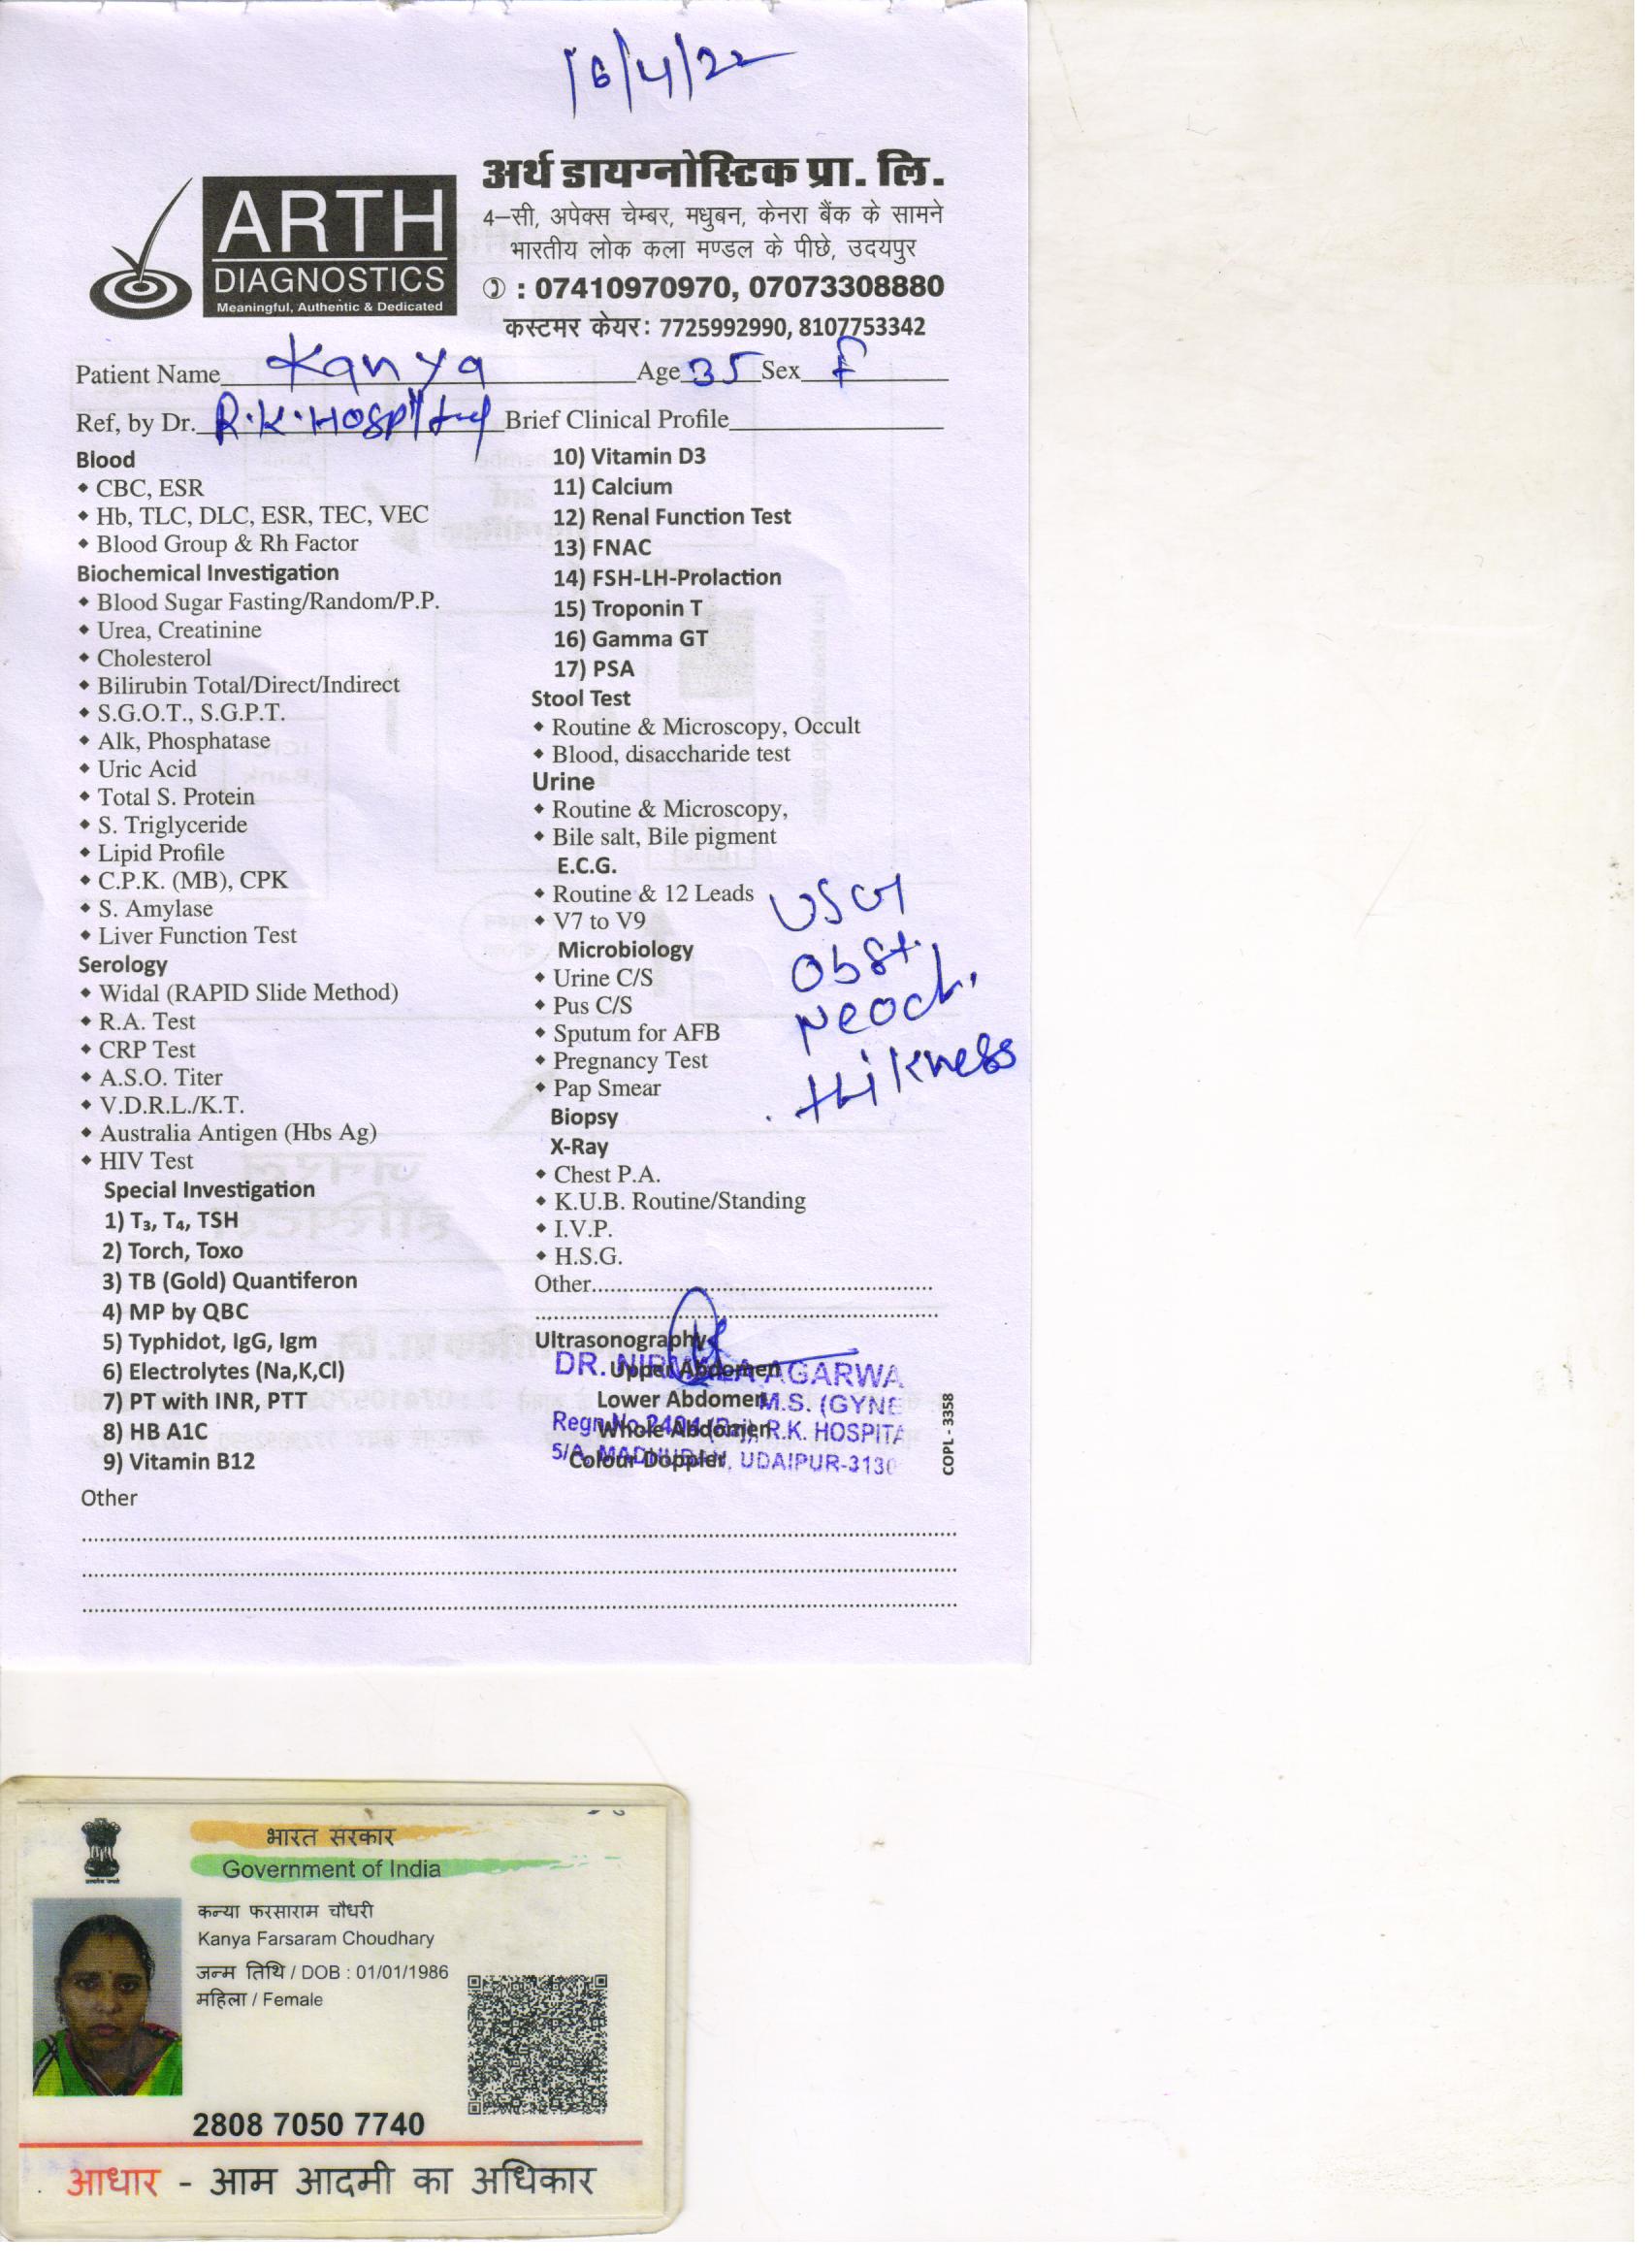 16/4/22
ARTH
DIAGNOSTICS
Meaningful, Authentic & Dedicated
अर्थ डायग्नोस्टिक प्रा. लि.
4-सी, अपेक्स चेम्बर, मधुबन, केनरा बैंक के सामने
भारतीय लोक कला मण्डल के पीछे, उदयपुर
: 07410970970, 07073308880
कस्टमर केयर: 7725992990, 8107753342
Patient Name Kanya Age 35 Sex F
Ref, by Dr. R.K. Hospital Brief Clinical Profile
Blood
• CBC, ESR
• Hb, TLC, DLC, ESR, TEC, VEC
• Blood Group & Rh Factor
Biochemical Investigation
• Blood Sugar Fasting/Random/P.P.
• Urea, Creatinine
• Cholesterol
• Bilirubin Total/Direct/Indirect
• S.G.O.T., S.G.P.T.
• Alk, Phosphatase
• Uric Acid
• Total S. Protein
• S. Triglyceride
• Lipid Profile
• C.P.K. (MB), CPK
• S. Amylase
• Liver Function Test
Serology
• Widal (RAPID Slide Method)
• R.A. Test
• CRP Test
• A.S.O. Titer
• V.D.R.L./K.T.
• Australia Antigen (Hbs Ag)
• HIV Test
Special Investigation
1) T₃, T₄, TSH
2) Torch, Toxo
3) TB (Gold) Quantiferon
4) MP by QBC
5) Typhidot, IgG, Igm
6) Electrolytes (Na,K,Cl)
7) PT with INR, PTT
8) HB A1C
9) Vitamin B12
10) Vitamin D3
11) Calcium
12) Renal Function Test
13) FNAC
14) FSH-LH-Prolaction
15) Troponin T
16) Gamma GT
17) PSA
Stool Test
• Routine & Microscopy, Occult
• Blood, disaccharide test
Urine
• Routine & Microscopy,
• Bile salt, Bile pigment
E.C.G.
• Routine & 12 Leads
• V7 to V9
Microbiology
• Urine C/S
• Pus C/S
• Sputum for AFB
• Pregnancy Test
• Pap Smear
Biopsy
X-Ray
• Chest P.A.
• K.U.B. Routine/Standing
• I.V.P.
• H.S.G.
Other
USG
Obst.
thikness
Ultrasonography
Upper Abdomen
Lower Abdomen
Whole Abdomen
Colour Doppler
DR. NIRMALA AGARWA
M.S. (GYNE
Regn.No. (Raj), R.K. HOSPITA
5/A, MADHUBAN, UDAIPUR-3130
COPL - 3358
Other
भारत सरकार
Government of India
कन्या फरसाराम चौधरी
Kanya Farsaram Choudhary
जन्म तिथि / DOB : 01/01/1986
महिला / Female
2808 7050 7740
आधार - आम आदमी का अधिकार